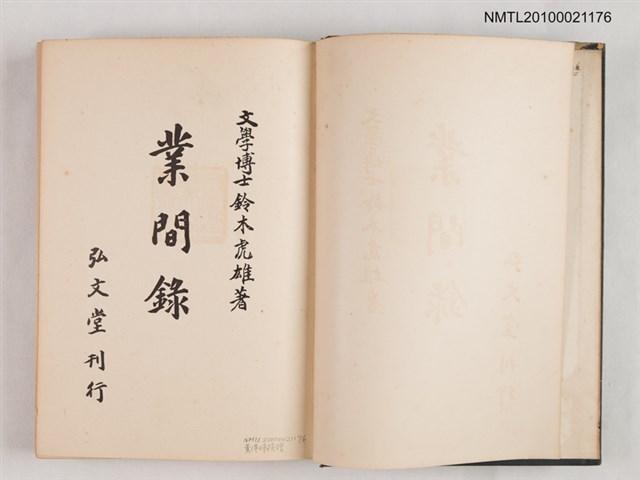 NMTL20100021176
文學博士 鈴木虎雄著
業間錄
弘文堂刊行
NMTL20100021176